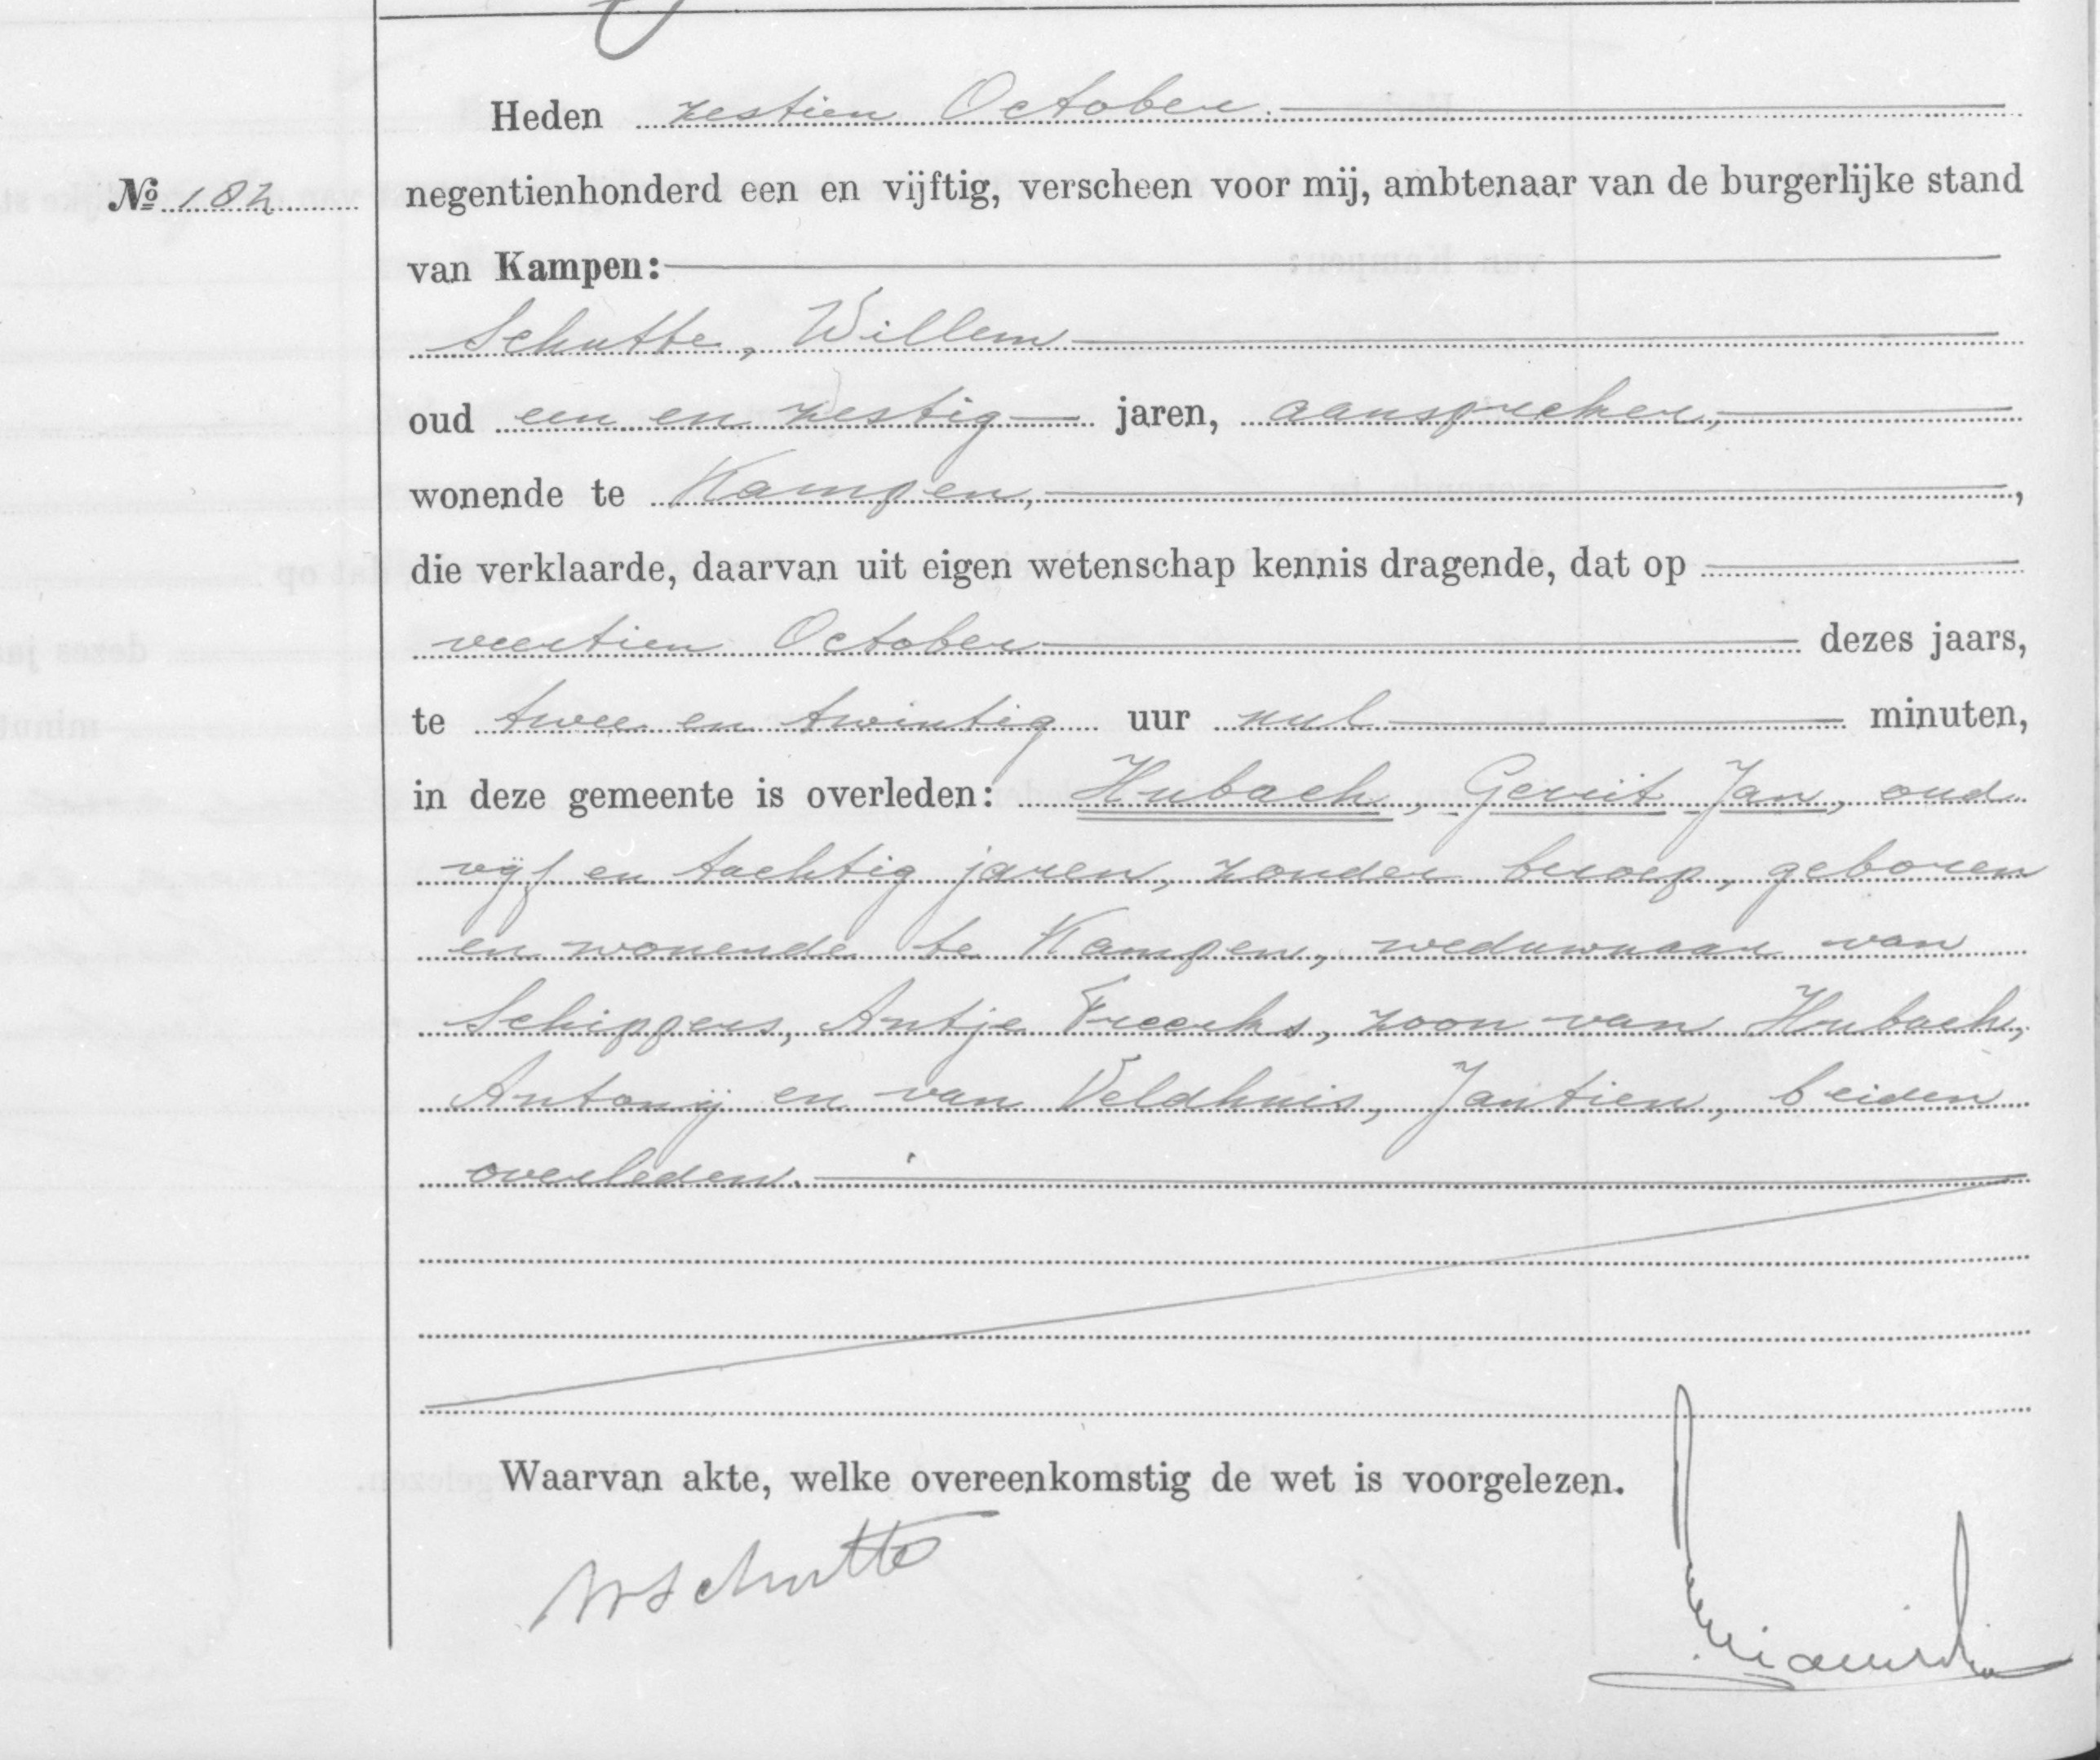 Heden zestien October.
No 182
negentienhonderd een en vijftig, verscheen voor mij, ambtenaar van de burgerlijke stand
van Kampen:
Schutte, Willem
oud een en zestig jaren, aanspreker,
wonende te Kampen, ,
die verklaarde, daarvan uit eigen wetenschap kennis dragende, dat op
veertien October dezes jaars,
te twee en twintig uur nul minuten,
in deze gemeente is overleden: Hubach, Gerrit Jan, oud
vijf en tachtig jaren, zonder beroep, geboren
en wonende te Kampen, weduwnaar van
Schippers, Antje Freerks, zoon van Hubach,
Antonij en van Veldhuis, Jantien, beiden
overleden.
Waarvan akte, welke overeenkomstig de wet is voorgelezen.
W Schutte